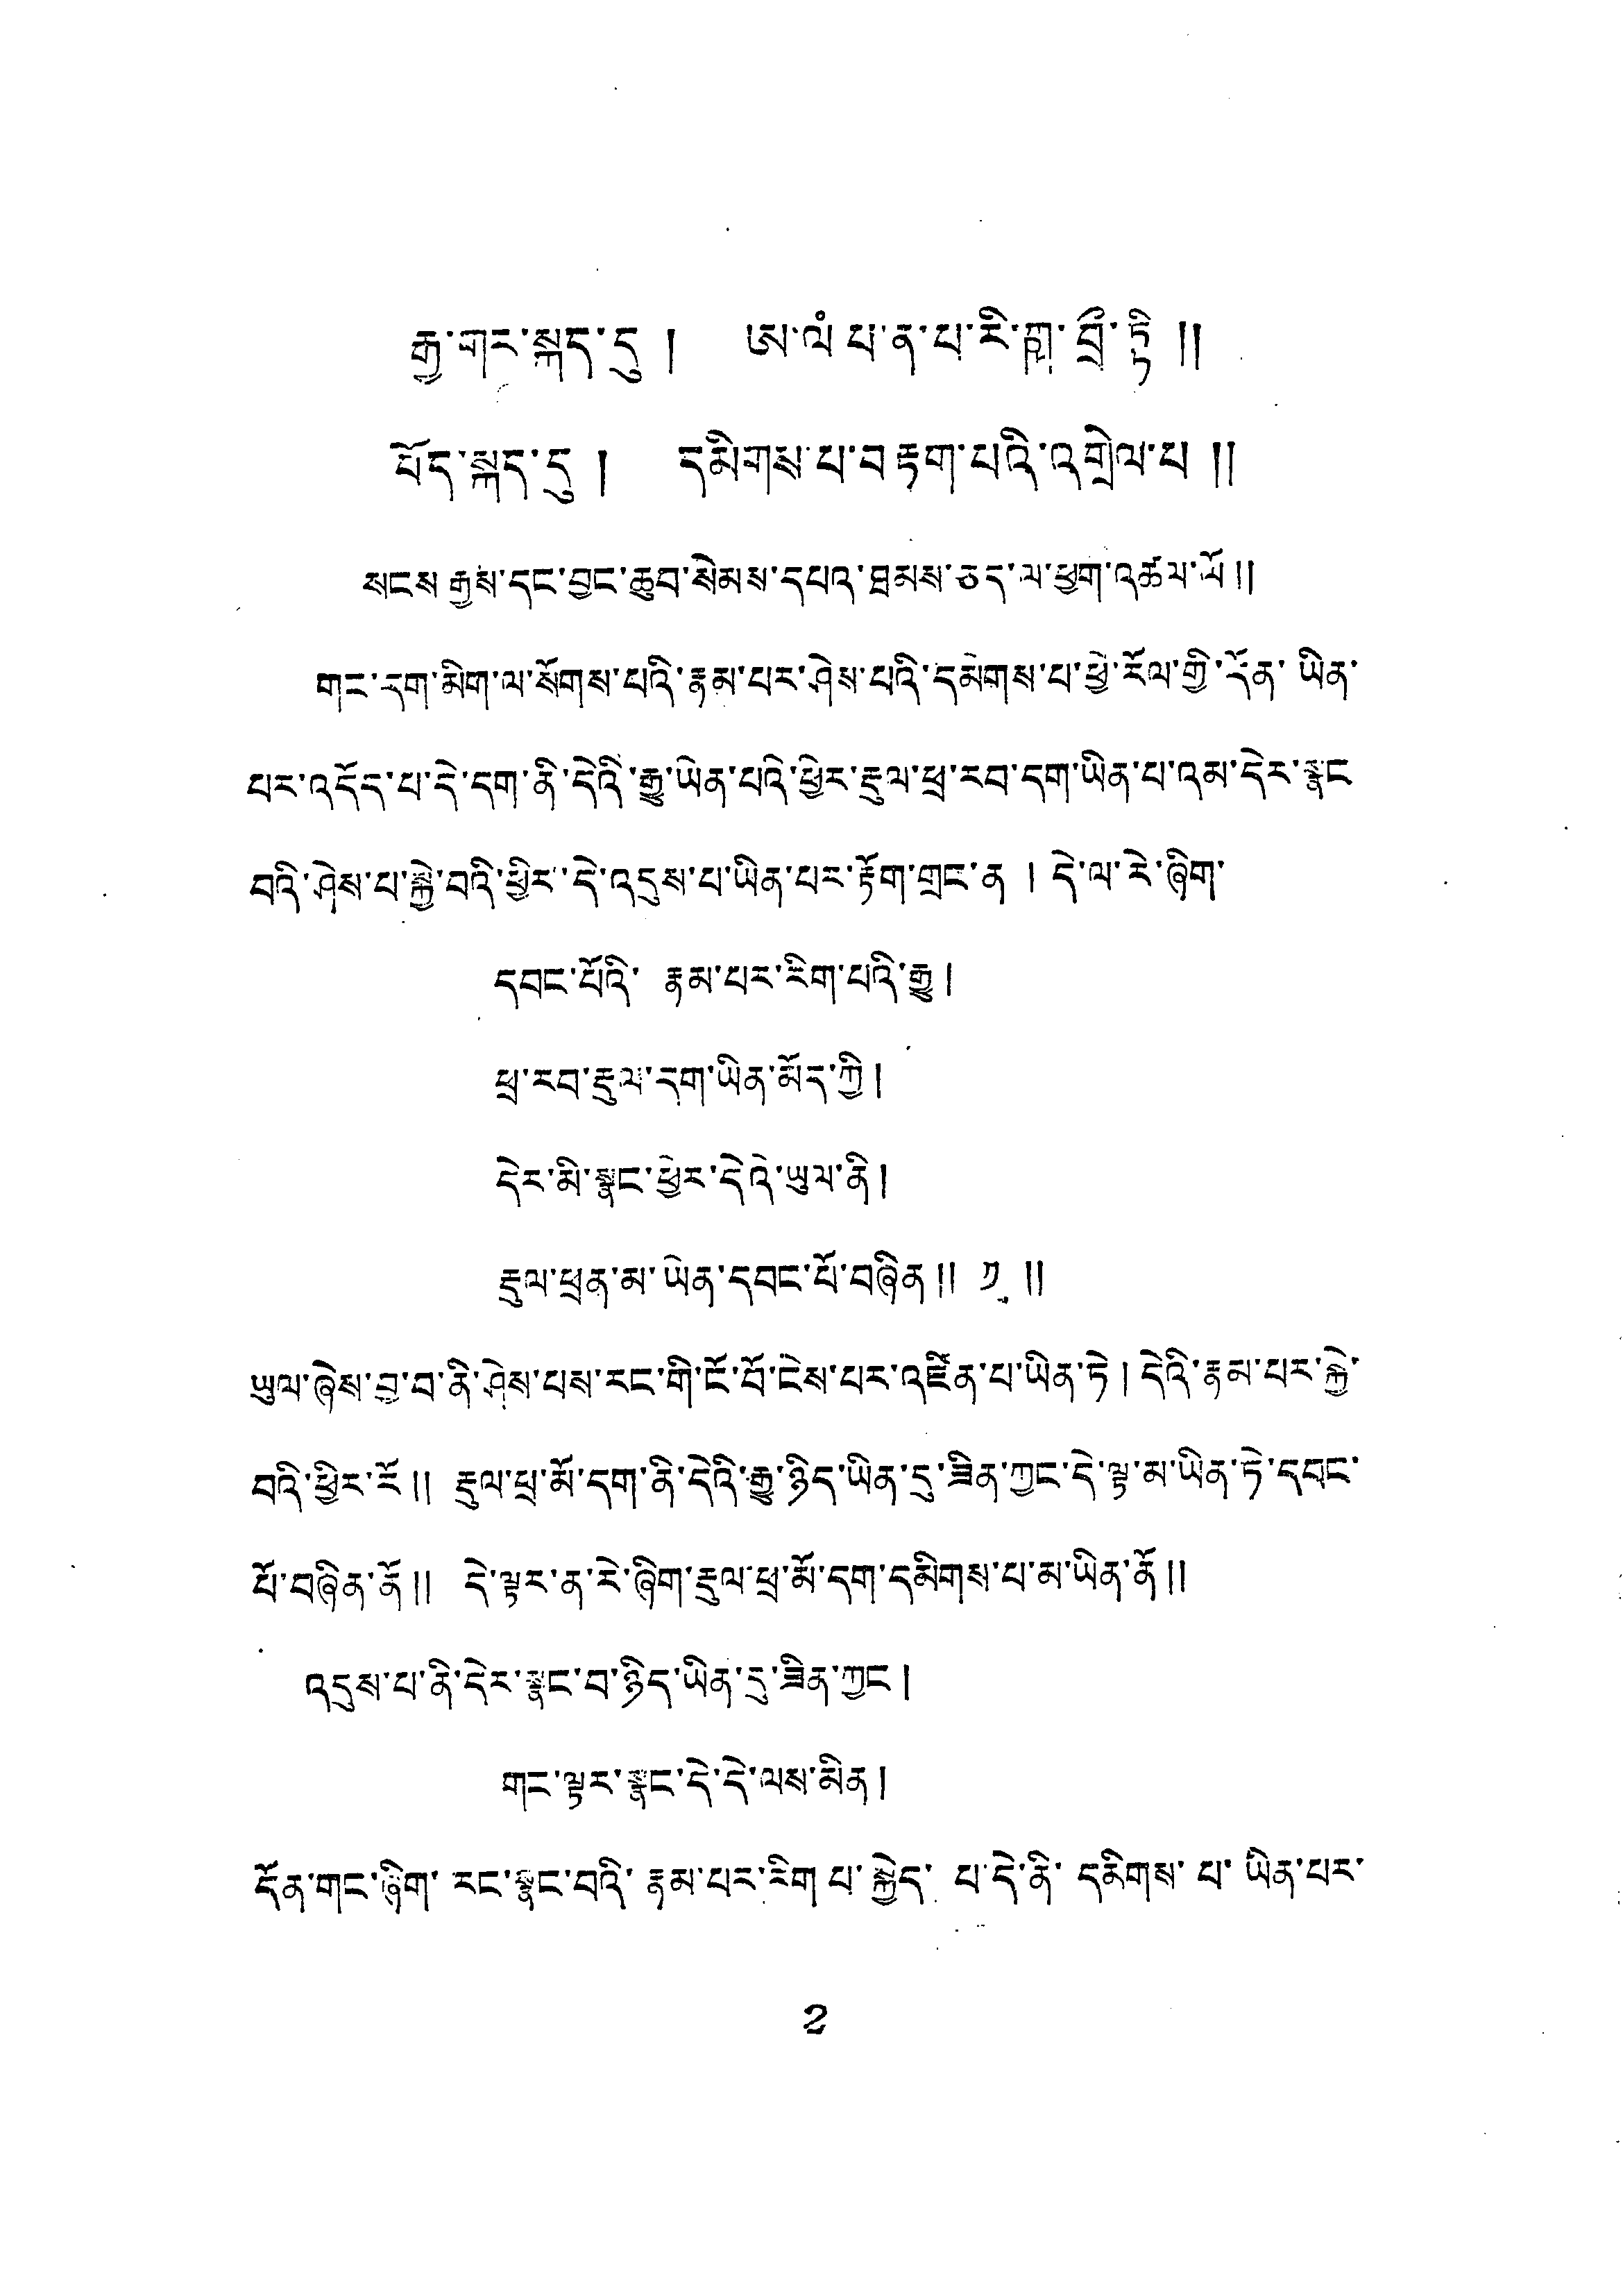 རྒྱ་གར་སྐད་དུ །   ཨ་ལཾ་པ་ན་པ་རི་ཀྵ་བྲྀ་ཏྟི །།
པོད་སྐད་དུ །   དམིགས་པ་བརྟག་པའི་འགྲེལ་པ །།
སངས་རྒྱས་དང་བྱང་ཆུབ་སེམས་དཔའ་ཐམས་ཅད་ལ་ཕྱག་འཚལ་ལོ །།
གང་དག་མིག་ལ་སོགས་པའི་རྣམ་པར་ཤེས་པའི་དམིགས་པ་ཕྱི་རོལ་གྱི་དོན་ཡིན་
པར་འདོད་པ་དེ་དག་ནི་དེའི་རྒྱུ་ཡིན་པའི་ཕྱིར་རྡུལ་ཕྲ་རབ་དག་ཡིན་པ་འམ་དེར་སྣང
བའི་ཤེས་པ་སྐྱེ་བའི་ཕྱིར་དེ་འདུས་པ་ཡིན་པར་རྟོག་གྲང་ན ། དེ་ལ་རེ་ཞིག་
དབང་པོའི་ རྣམ་པར་རིག་པའི་རྒྱུ །
ཕྲ་རབ་རྡུལ་དག་ཡིན་མོད་ཀྱི །
དེར་མི་སྣང་ཕྱིར་དེའི་ཡུལ་ནི །
རྡུལ་ཕྲན་མ་ཡིན་དབང་པོ་བཞིན །། ༡ །།
ཡུལ་ཞེས་བྱ་བ་ནི་ཤེས་པས་རང་གི་ངོ་བོ་ངེས་པར་འཛིན་པ་ཡིན་ཏེ། དེའི་རྣམ་པར་སྐྱེ་
བའི་ཕྱིར་རོ །། རྡུལ་ཕྲ་མོ་དག་ནི་དེའི་རྒྱུ་ཉིད་ཡིན་དུ་ཟིན་ཀྱང་དེ་ལྟ་མ་ཡིན་ཏེ་དབང་
པོ་བཞིན་ནོ །། དེ་ལྟར་ན་རེ་ཞིག་རྡུལ་ཕྲ་མོ་དག་དམིགས་པ་མ་ཡིན་ནོ །།
འདུས་པ་ནི་དེར་སྣང་བ་ཉིད་ཡིན་དུ་ཟིན་ཀྱང །
གང་ལྟར་སྣང་དེ་དེ་ལས་མིན །
དོན་གང་ཞིག་ རང་སྣང་བའི་ རྣམ་པར་རིག་པ་ སྐྱེད་ པ་དེ་ནི་ དམིགས་ པ་ ཡིན་པར་
2